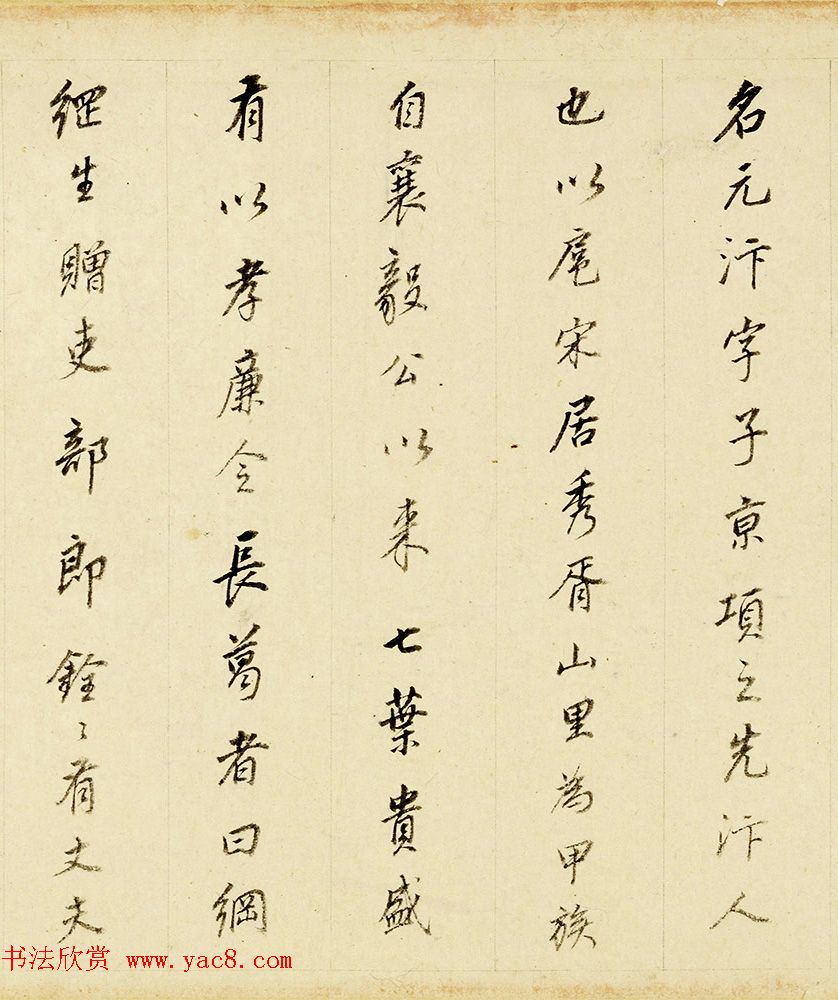 名元汴字子京項之先汴人
也以扈宋居秀胥山里為甲族
自襄毅公以来七葉貴盛
有以孝廉令長葛者曰綱
綱生贈吏部郎銓〻有丈夫
书法欣赏 www.yac8.com